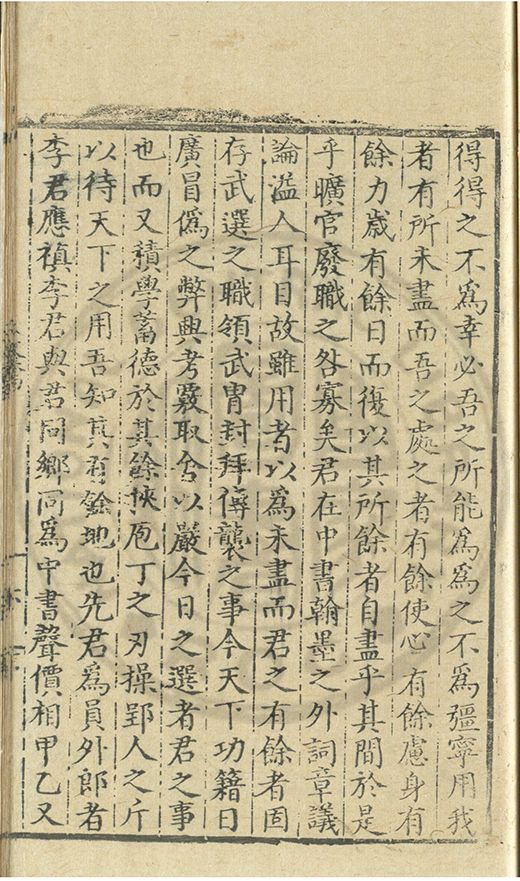 得得之不爲幸必吾之所能爲爲之不爲彊寧用我
者有所未盡而吾之處之者有餘使心有餘慮身有
餘力歲有餘日而復以其所餘者自盡乎其間於是
乎曠官廢職之咎寡矣君在中書翰墨之外詞章議
論溢人耳目故雖用者以爲未盡而君之有餘者固
存武選之職領武胄封拜傳襲之事今天下功籍日
廣冒僞之弊興考覈取舍以嚴今日之選者君之事
也而又積學蓄德於其餘挾庖丁之刃操郢人之斤
以待天下之用吾知其有餘地也先君爲員外郎者
李君應禎李君與君同鄉同爲中書聲價相甲乙又